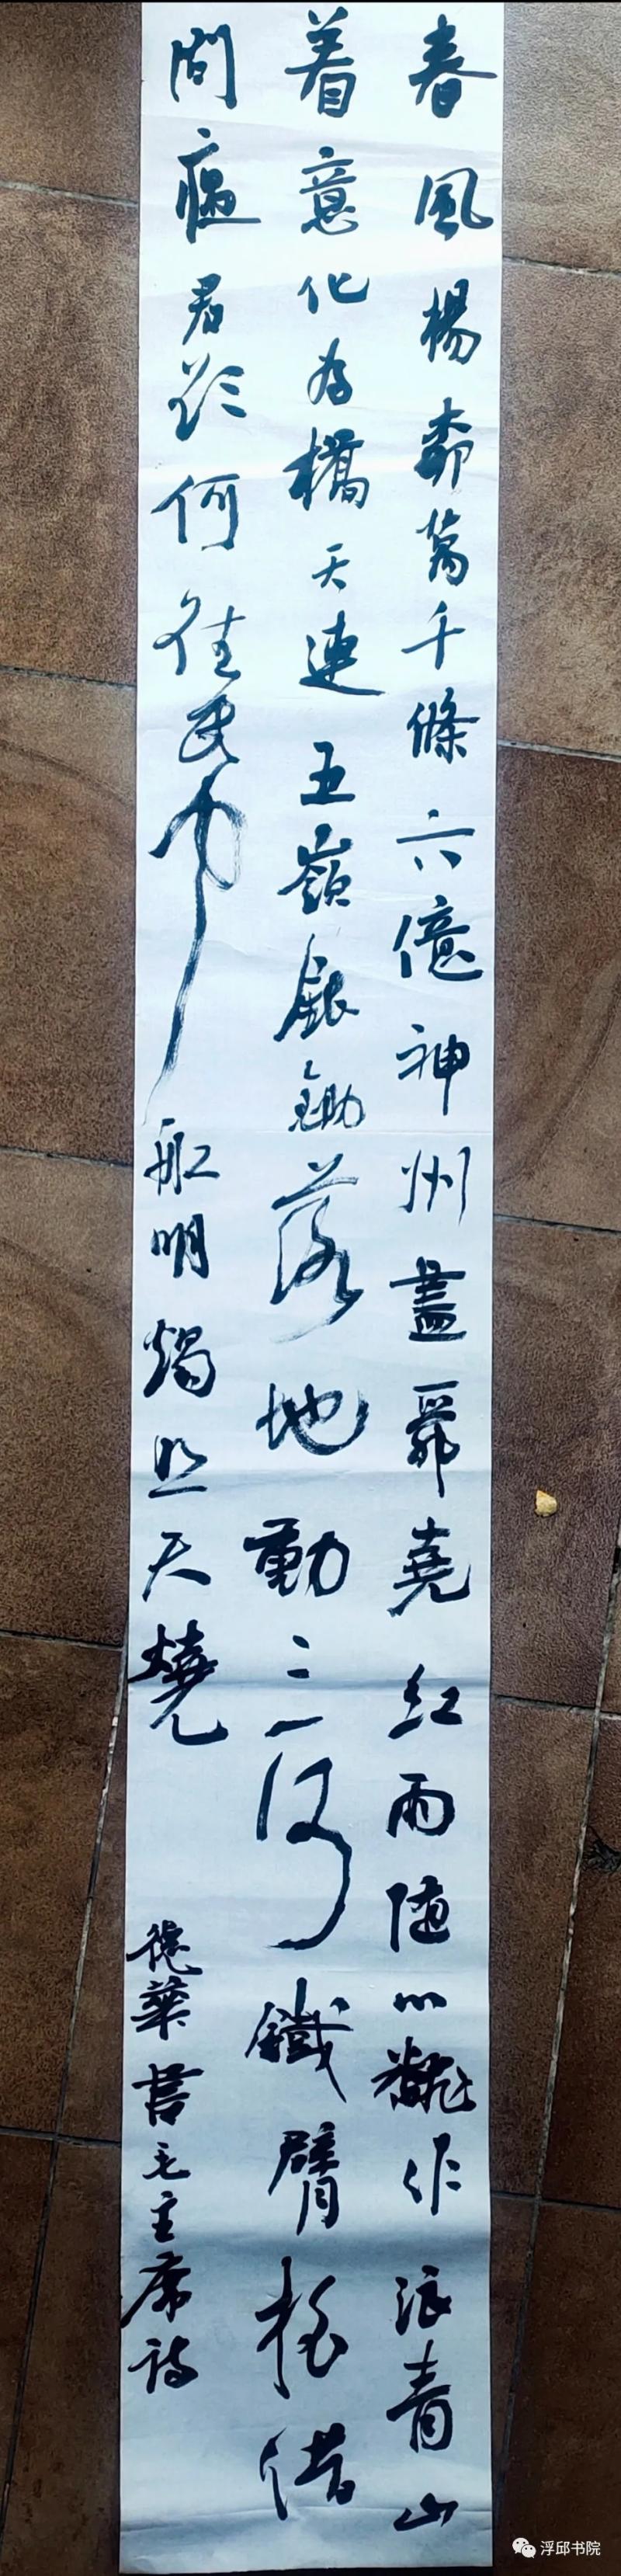 春風楊柳萬千條六億神州盡舜堯紅雨随心飜作浪青山
着意化为橋天連五嶺銀鋤落地動三河鐵臂摇借
問瘟君欲何往帋船明燭照天燒
德華書毛主席詩
浮邱书院